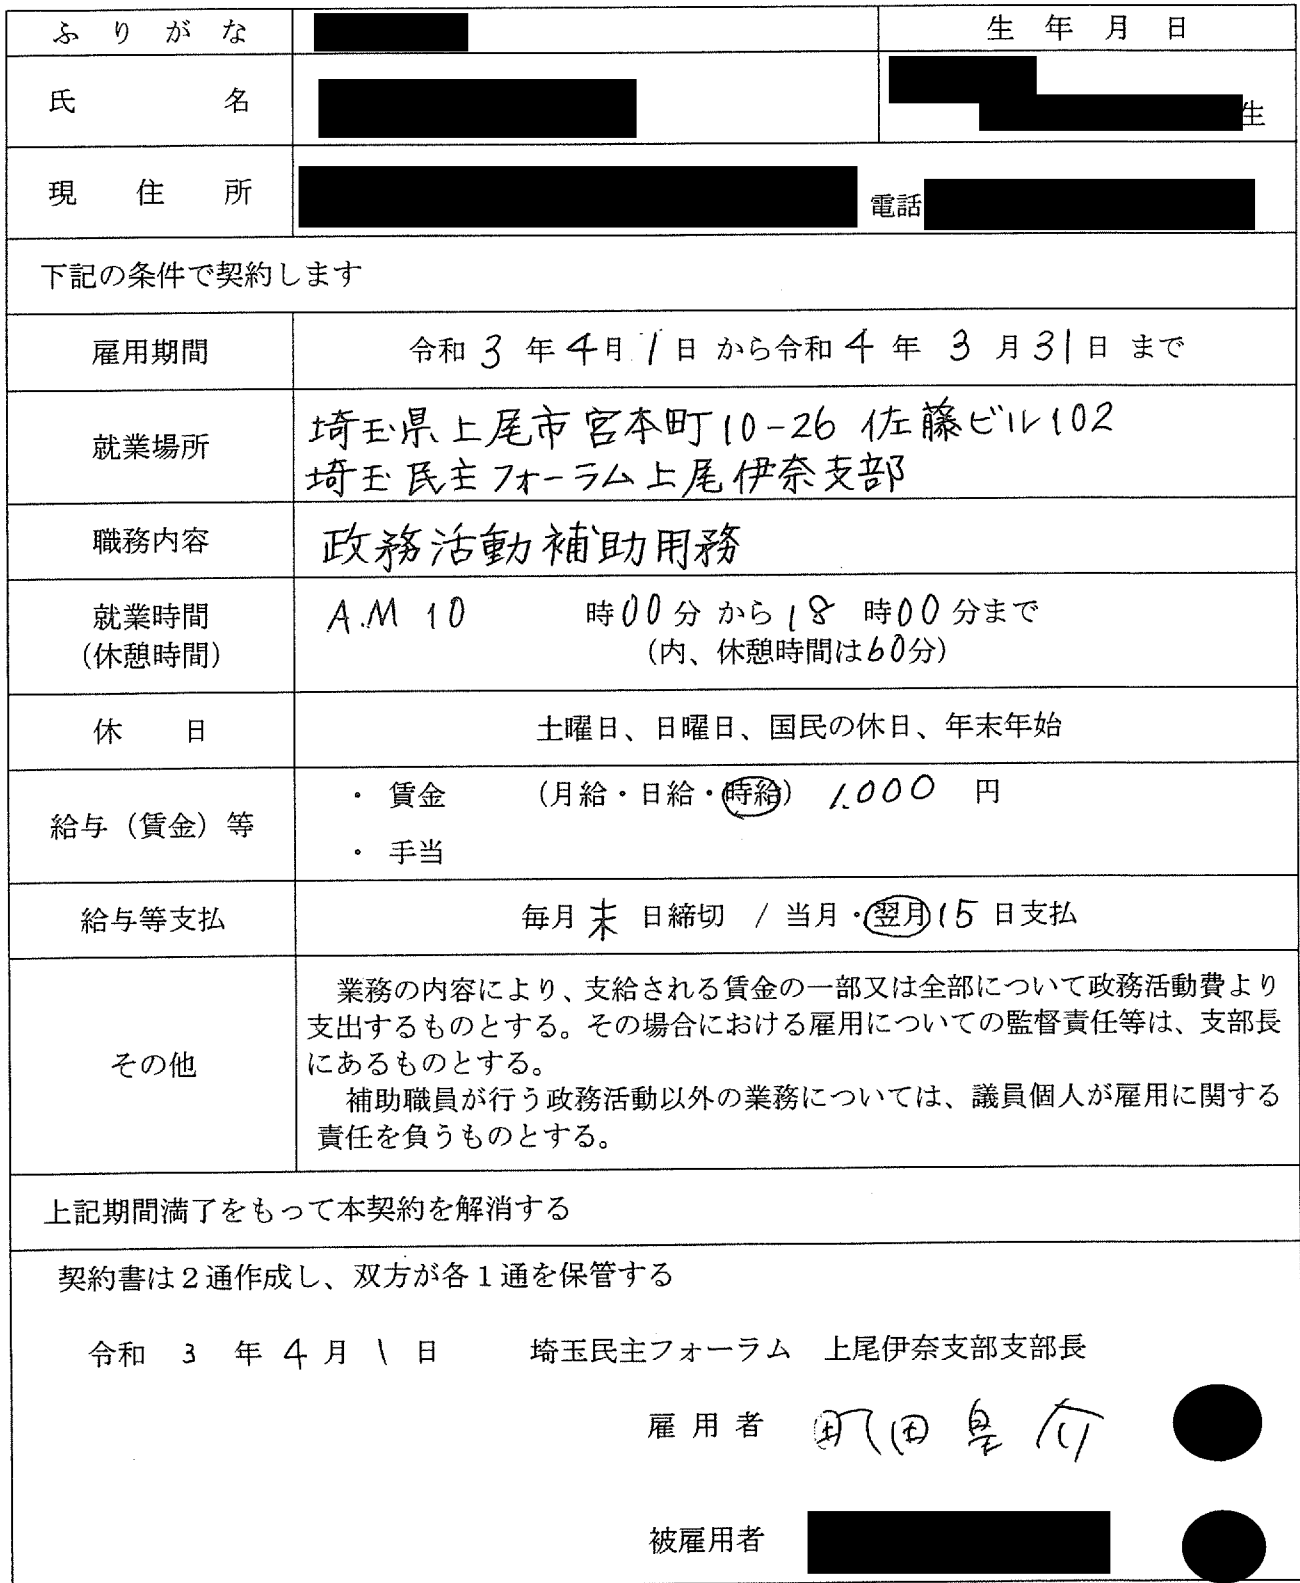 ふりがな
生年月日
氏名
生
現住所
電話
下記の条件で契約します
雇用期間
令和3年4月1日から令和4年3月31日まで
就業場所
埼玉県上尾市宮本町10-26 佐藤ビル102
埼玉民主フォーラム上尾伊奈支部
職務内容
政務活動補助用務
就業時間
(休憩時間)
A.M 10 時00分から18時00分まで
(内、休憩時間は60分)
休日
土曜日、日曜日、国民の休日、年末年始
給与(賃金)等
・ 賃金 (月給・日給・時給) 1.000 円
・ 手当
給与等支払
毎月末日締切 / 当月・翌月15日支払
その他
業務の内容により、支給される賃金の一部又は全部について政務活動費より
支出するものとする。その場合における雇用についての監督責任等は、支部長
にあるものとする。
補助職員が行う政務活動以外の業務については、議員個人が雇用に関する
責任を負うものとする。
上記期間満了をもって本契約を解消する
契約書は2通作成し、双方が各1通を保管する
令和 3 年 4 月 1 日 埼玉民主フォーラム 上尾伊奈支部支部長
雇用者 町田皇介
被雇用者